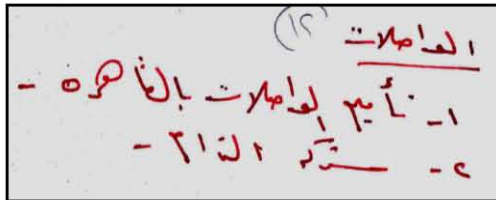 (١٢)
المواصلات
١- تأميم المواصلات بالقاهرة -
٢- شركة الترام -